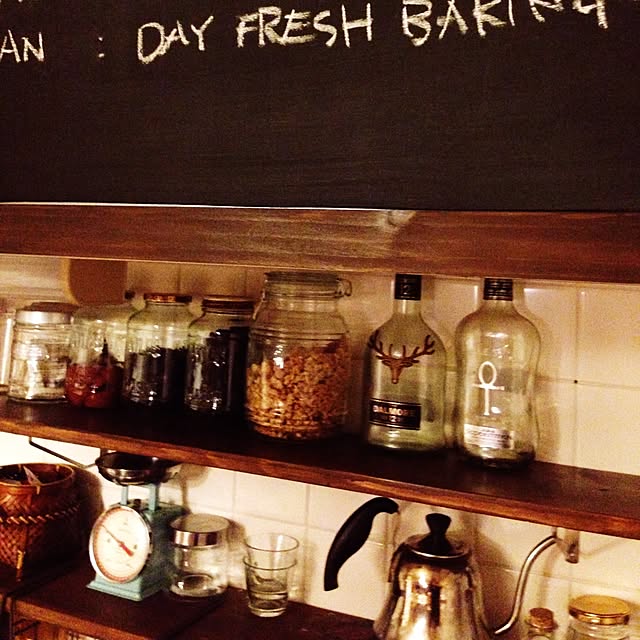 AN : DAY FRESH BAKING
DALMORE